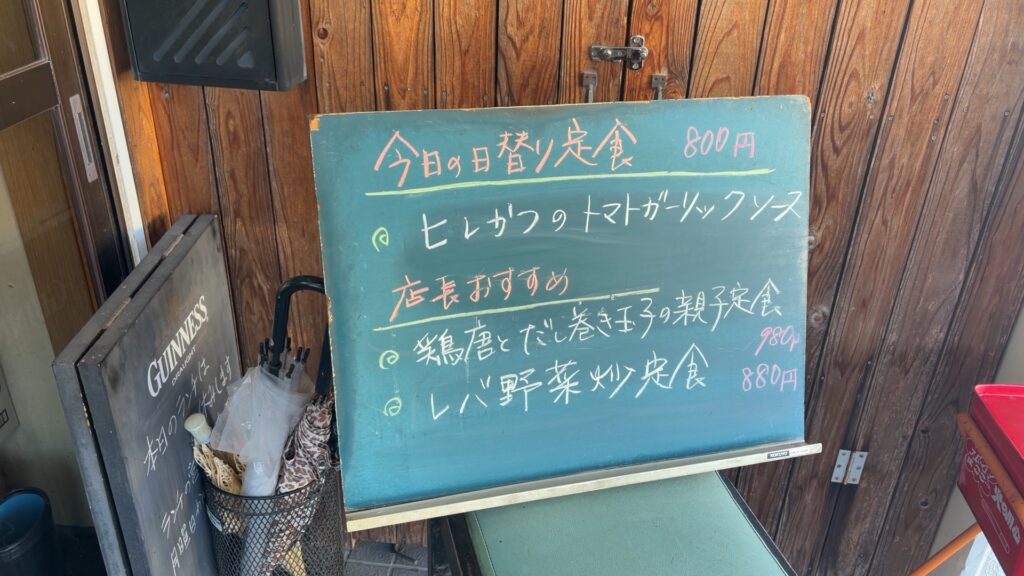 今日の日替り定食 800円
ヒレかつのトマトガーリックソース
店長おすすめ
鶏唐とだし巻き玉子の親子定食
980円
レバ野菜炒定食 880円
GUINNESS
本日のランチは